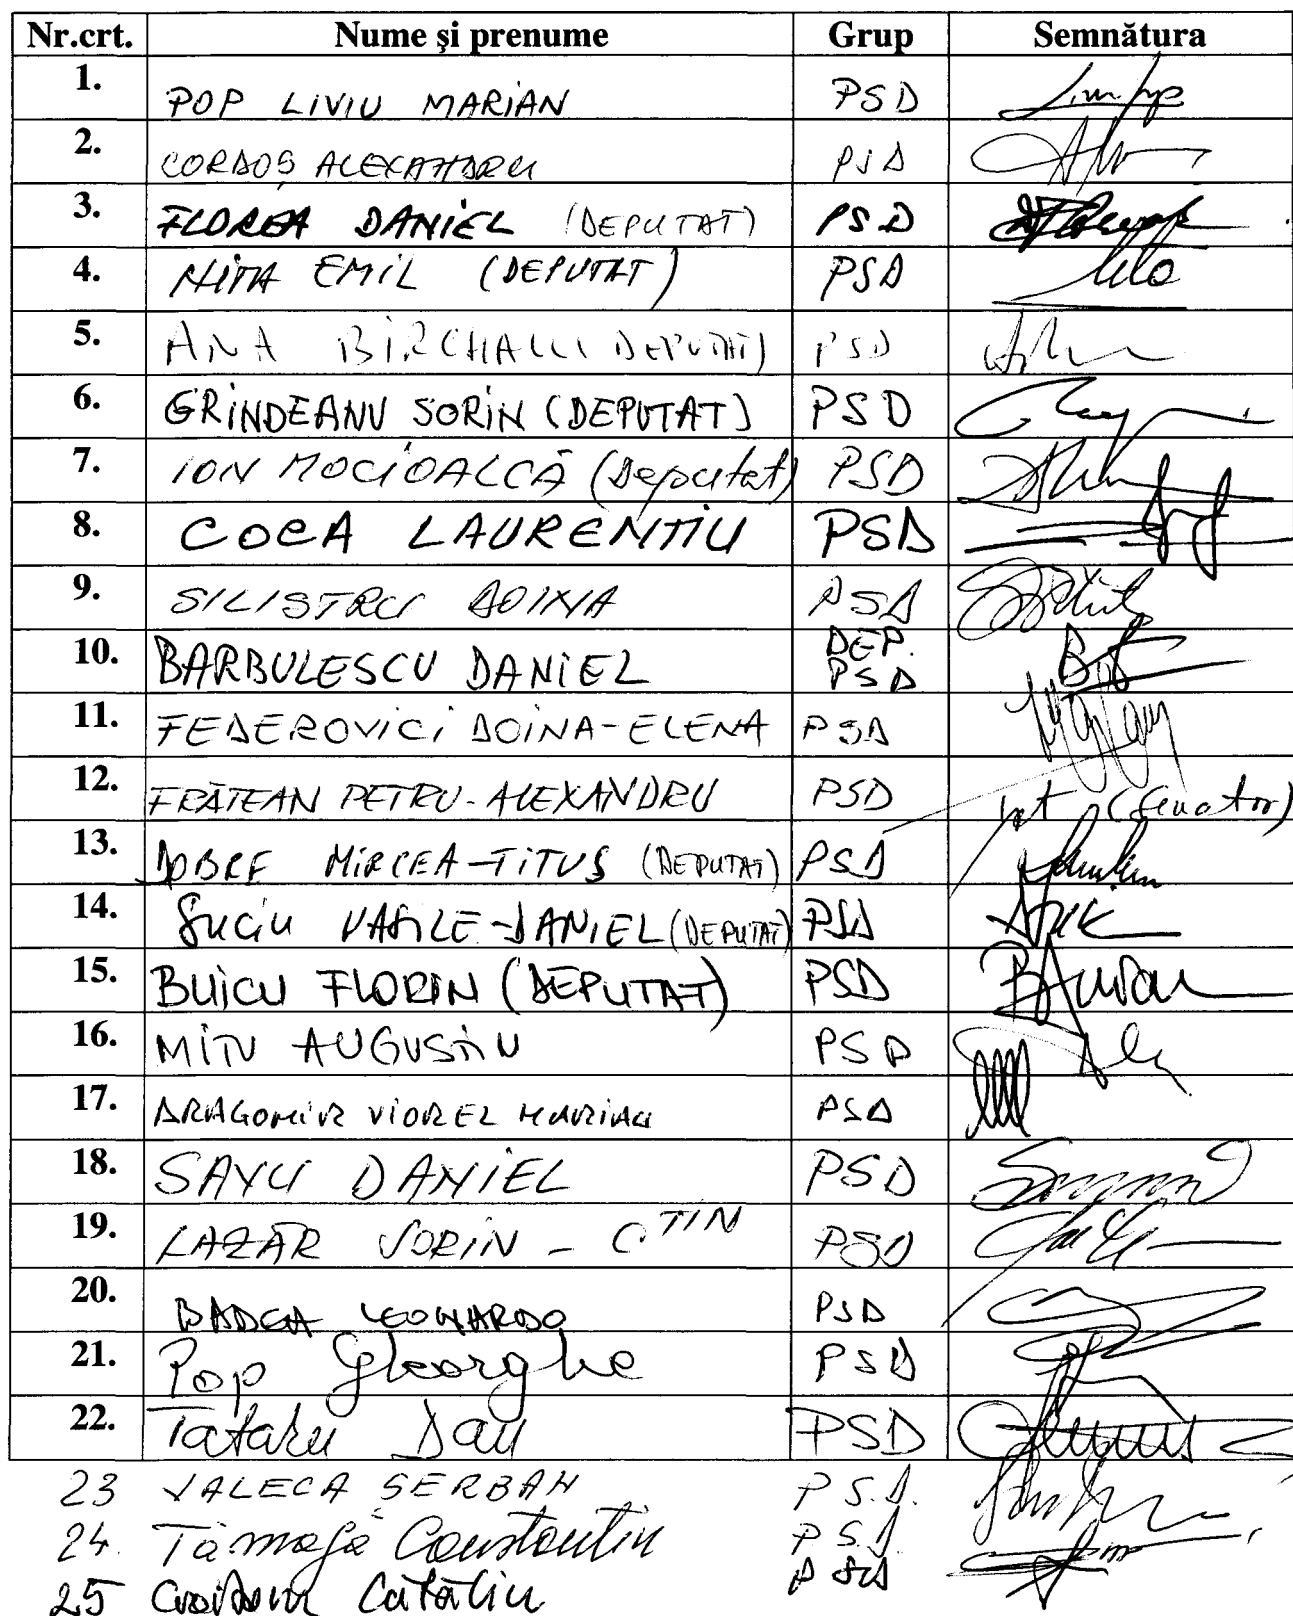 Nr.crt. Nume și prenume Grup Semnătura
1. POP LIVIU MARIAN PSD
2. CORDOȘ ALEXANDRU PSD
3. FLOREA DANIEL (DEPUTAT) PSD
4. NITA EMIL (DEPUTAT) PSD
5. ANA BIRCHALL (DEPUTAT) PSD
6. GRINDEANU SORIN (DEPUTAT) PSD
7. ION MOCIOALCĂ (Deputat) PSD
8. COCA LAURENTIU PSD
9. SILISTRU DOINA PSD
10. BARBULESCU DANIEL DEP. PSD
11. FEDEROVICI DOINA-ELENA PSD
12. FRĂTEAN PETRU-ALEXANDRU PSD (Senator)
13. DOBRE MIRCEA-TITUS (DEPUTAT) PSD
14. SUCIU VASILE-DANIEL (DEPUTAT) PSD
15. BUICU FLORIN (DEPUTAT) PSD
16. MITU AUGUSTIN PSD
17. DRAGOMIR VIOREL MARIAN PSD
18. SAVU DANIEL PSD
19. LAZĂR SORIN - C.TIN PSD
20. BADEA LEONARDO PSD
21. Pop Gheorghe PSD
22. Tataru Dan PSD
23 VALECA SERBAN P S.D.
24. Tâmagă Constantin P S D.
25 Cătălin PSD